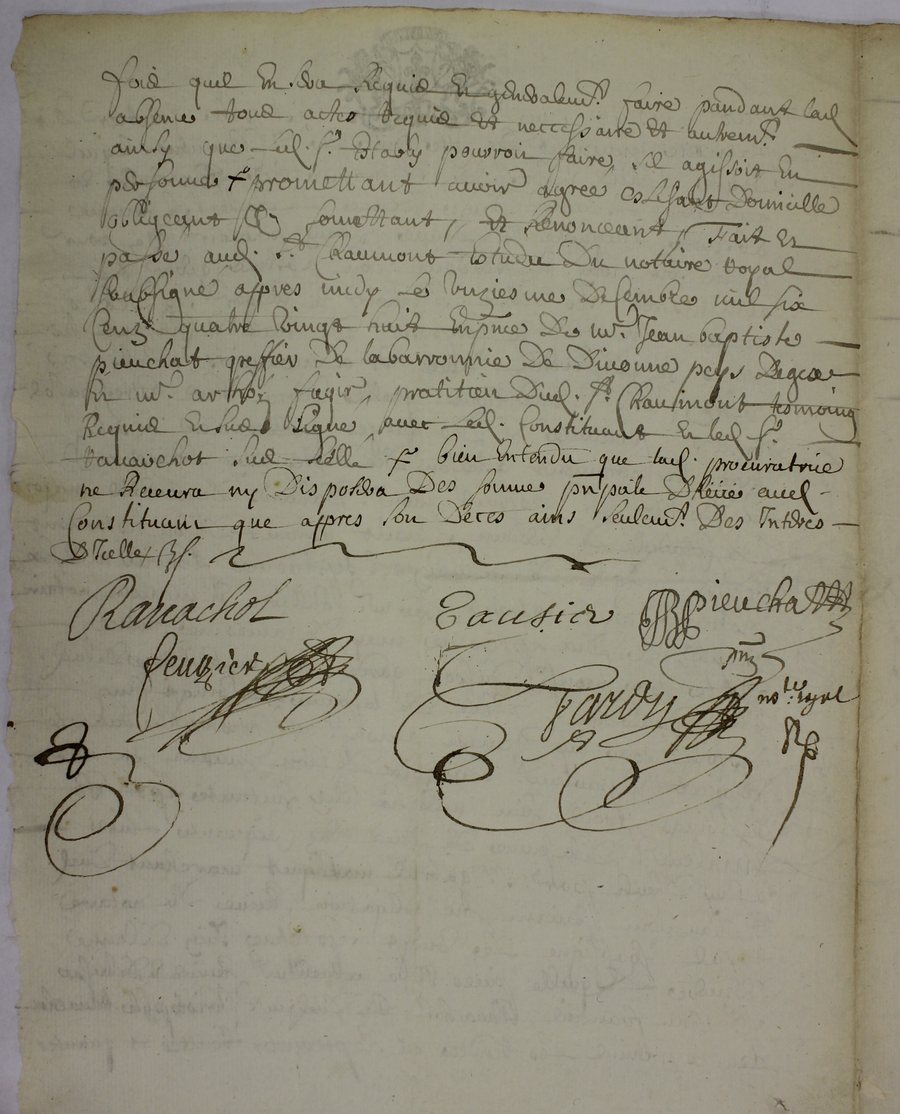 fois quil en sera Requis Et generalemt. faire pandant lad
absence tous actes Requis Et neccessaire Et autremt.
ainsy que led. sr. pourroit faire sil agissoit En
personne promettant avoir agreé Domicille
obligeant somettant, Et Renonceant, Fait Et
passé aud. st. Chaumont Estude Du notaire Royal
soubsigné appres midy Le unziesme Desembre mil six
Centz quatre vingt huit En pnce De mr. Jean baptiste
pieuchat greffier De la barronnie De Divonne peys De gex
Et mr. pratitien Dud. st. Chaumont tesmoing
Requis signé avec led. Constituant Et led sr.
Ravachot bien Entendu que lad. procuratrice
ne Recevra ny Disposera Des somme pnpale aud.
Constituant que appres son Deces ains seulemt. Des Interes
D'Icelle
Ravachol
pieuchat
Tardy
notre. royal